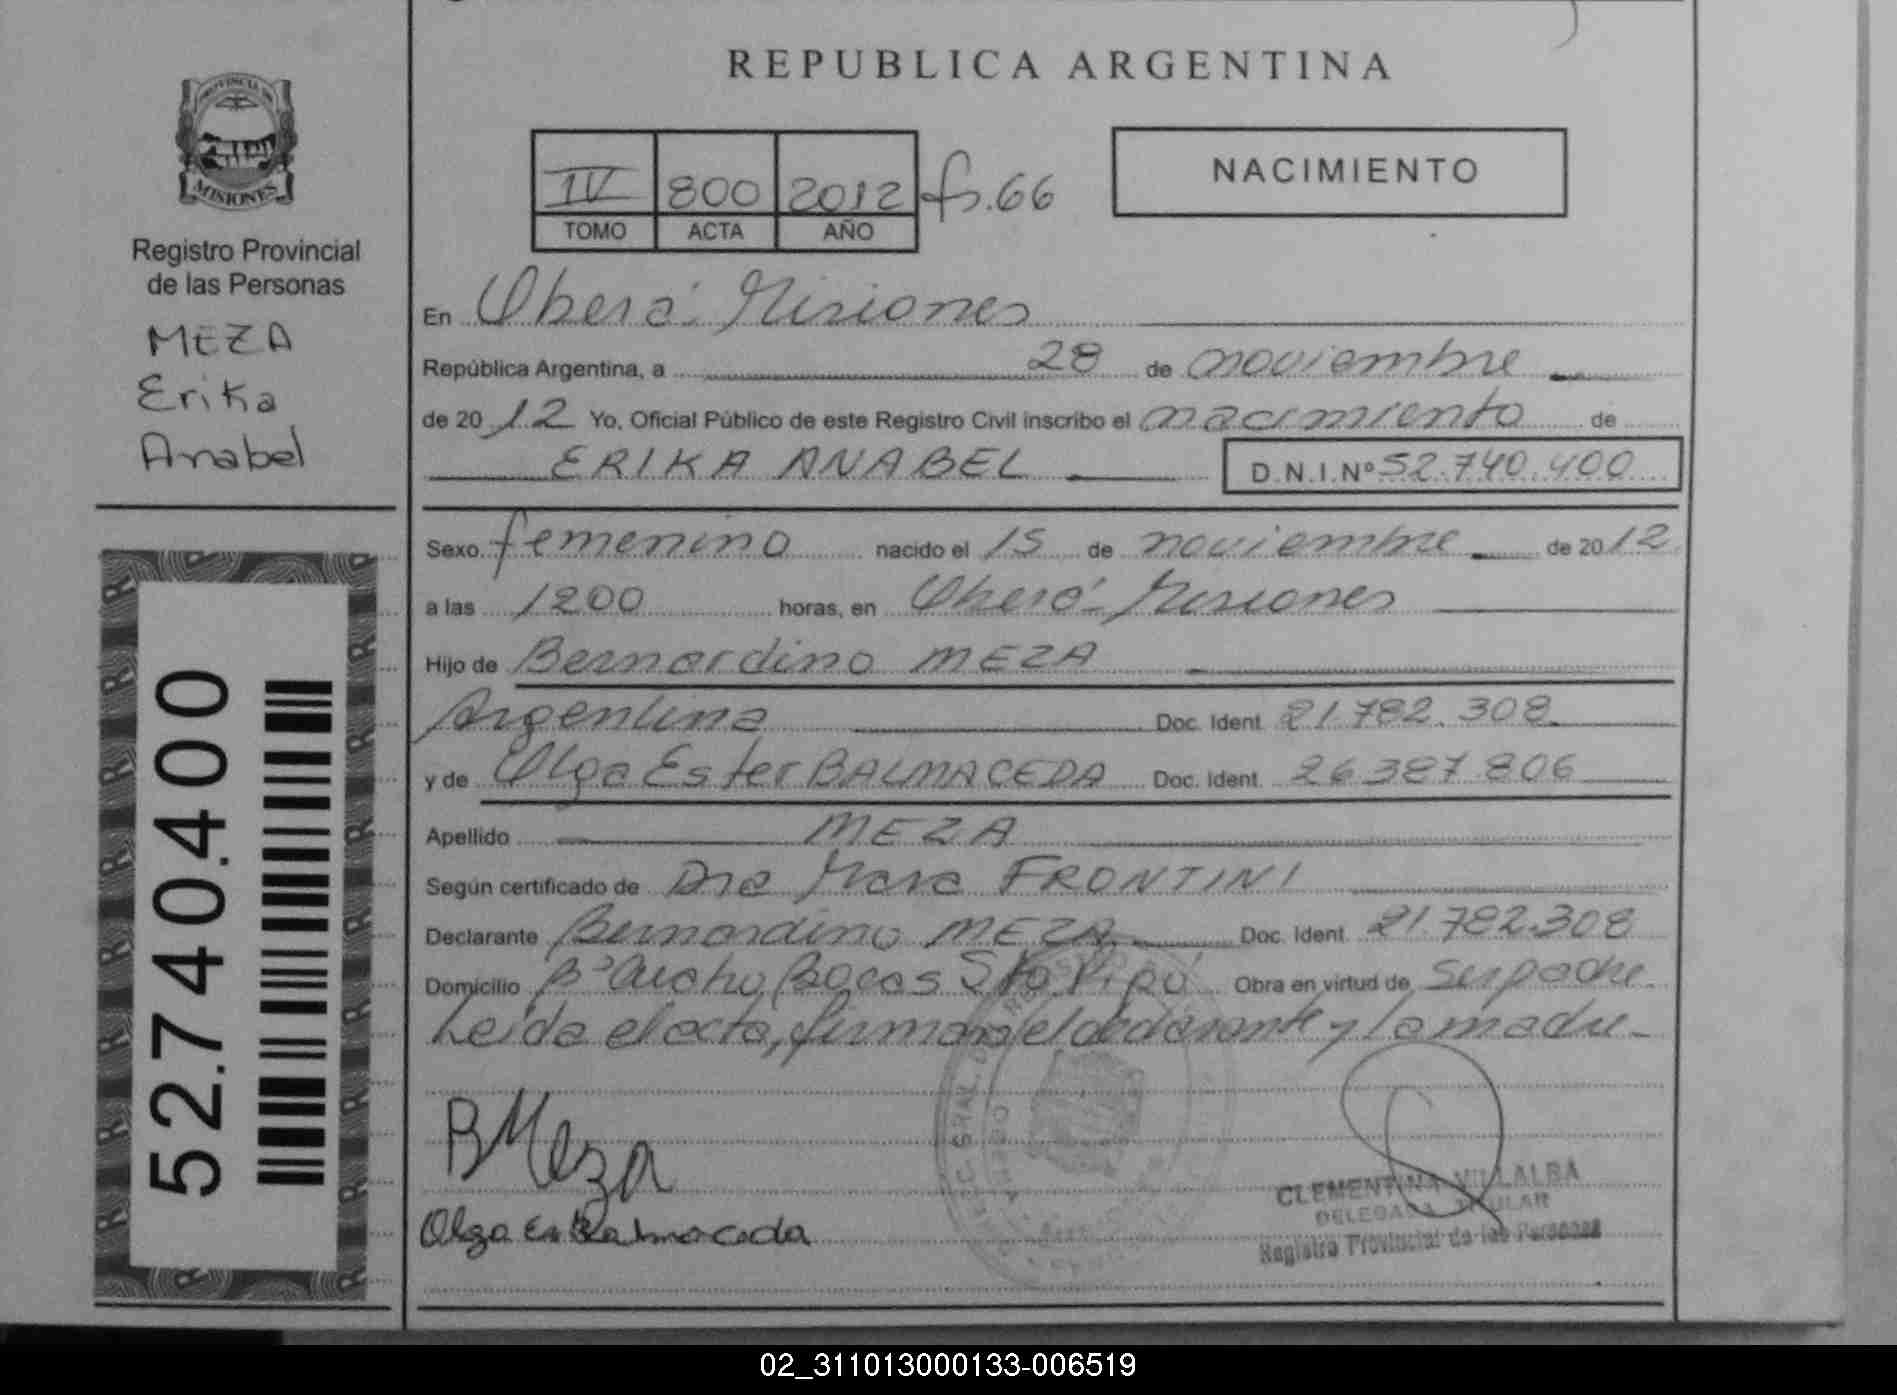 REPUBLICA ARGENTINA
PROVINCIA DE
MISIONES
Registro Provincial
de las Personas
MEZA
Erika
Anabel
52.740.400
IV 800 2012 fs.66
TOMO ACTA AÑO
NACIMIENTO
En Oberá Misiones
República Argentina, a 28 de noviembre
de 2012 Yo, Oficial Público de este Registro Civil inscribo el nacimiento de
ERIKA ANABEL D.N.I.Nº 52.740.400
Sexo femenino nacido el 15 de noviembre de 2012
a las 1200 horas, en Oberá Misiones
Hijo de Bernardino MEZA
Argentina Doc. Ident. 21.782.308
y de Olga Ester BALMACEDA Doc. Ident. 26.387.806
Apellido MEZA
Según certificado de Dra Mara FRONTINI
Declarante Bernardino MEZA Doc. Ident. 21.782.308
Domicilio Bº Bocas Sto Pipó Obra en virtud de ser padre
Leida el acta, firman el declarante y la madre
B Meza
Olga Es Balmaceda
CLEMENTINA VILLALBA
DELEGADA TITULAR
Registro Provincial de las Personas
02_311013000133-006519